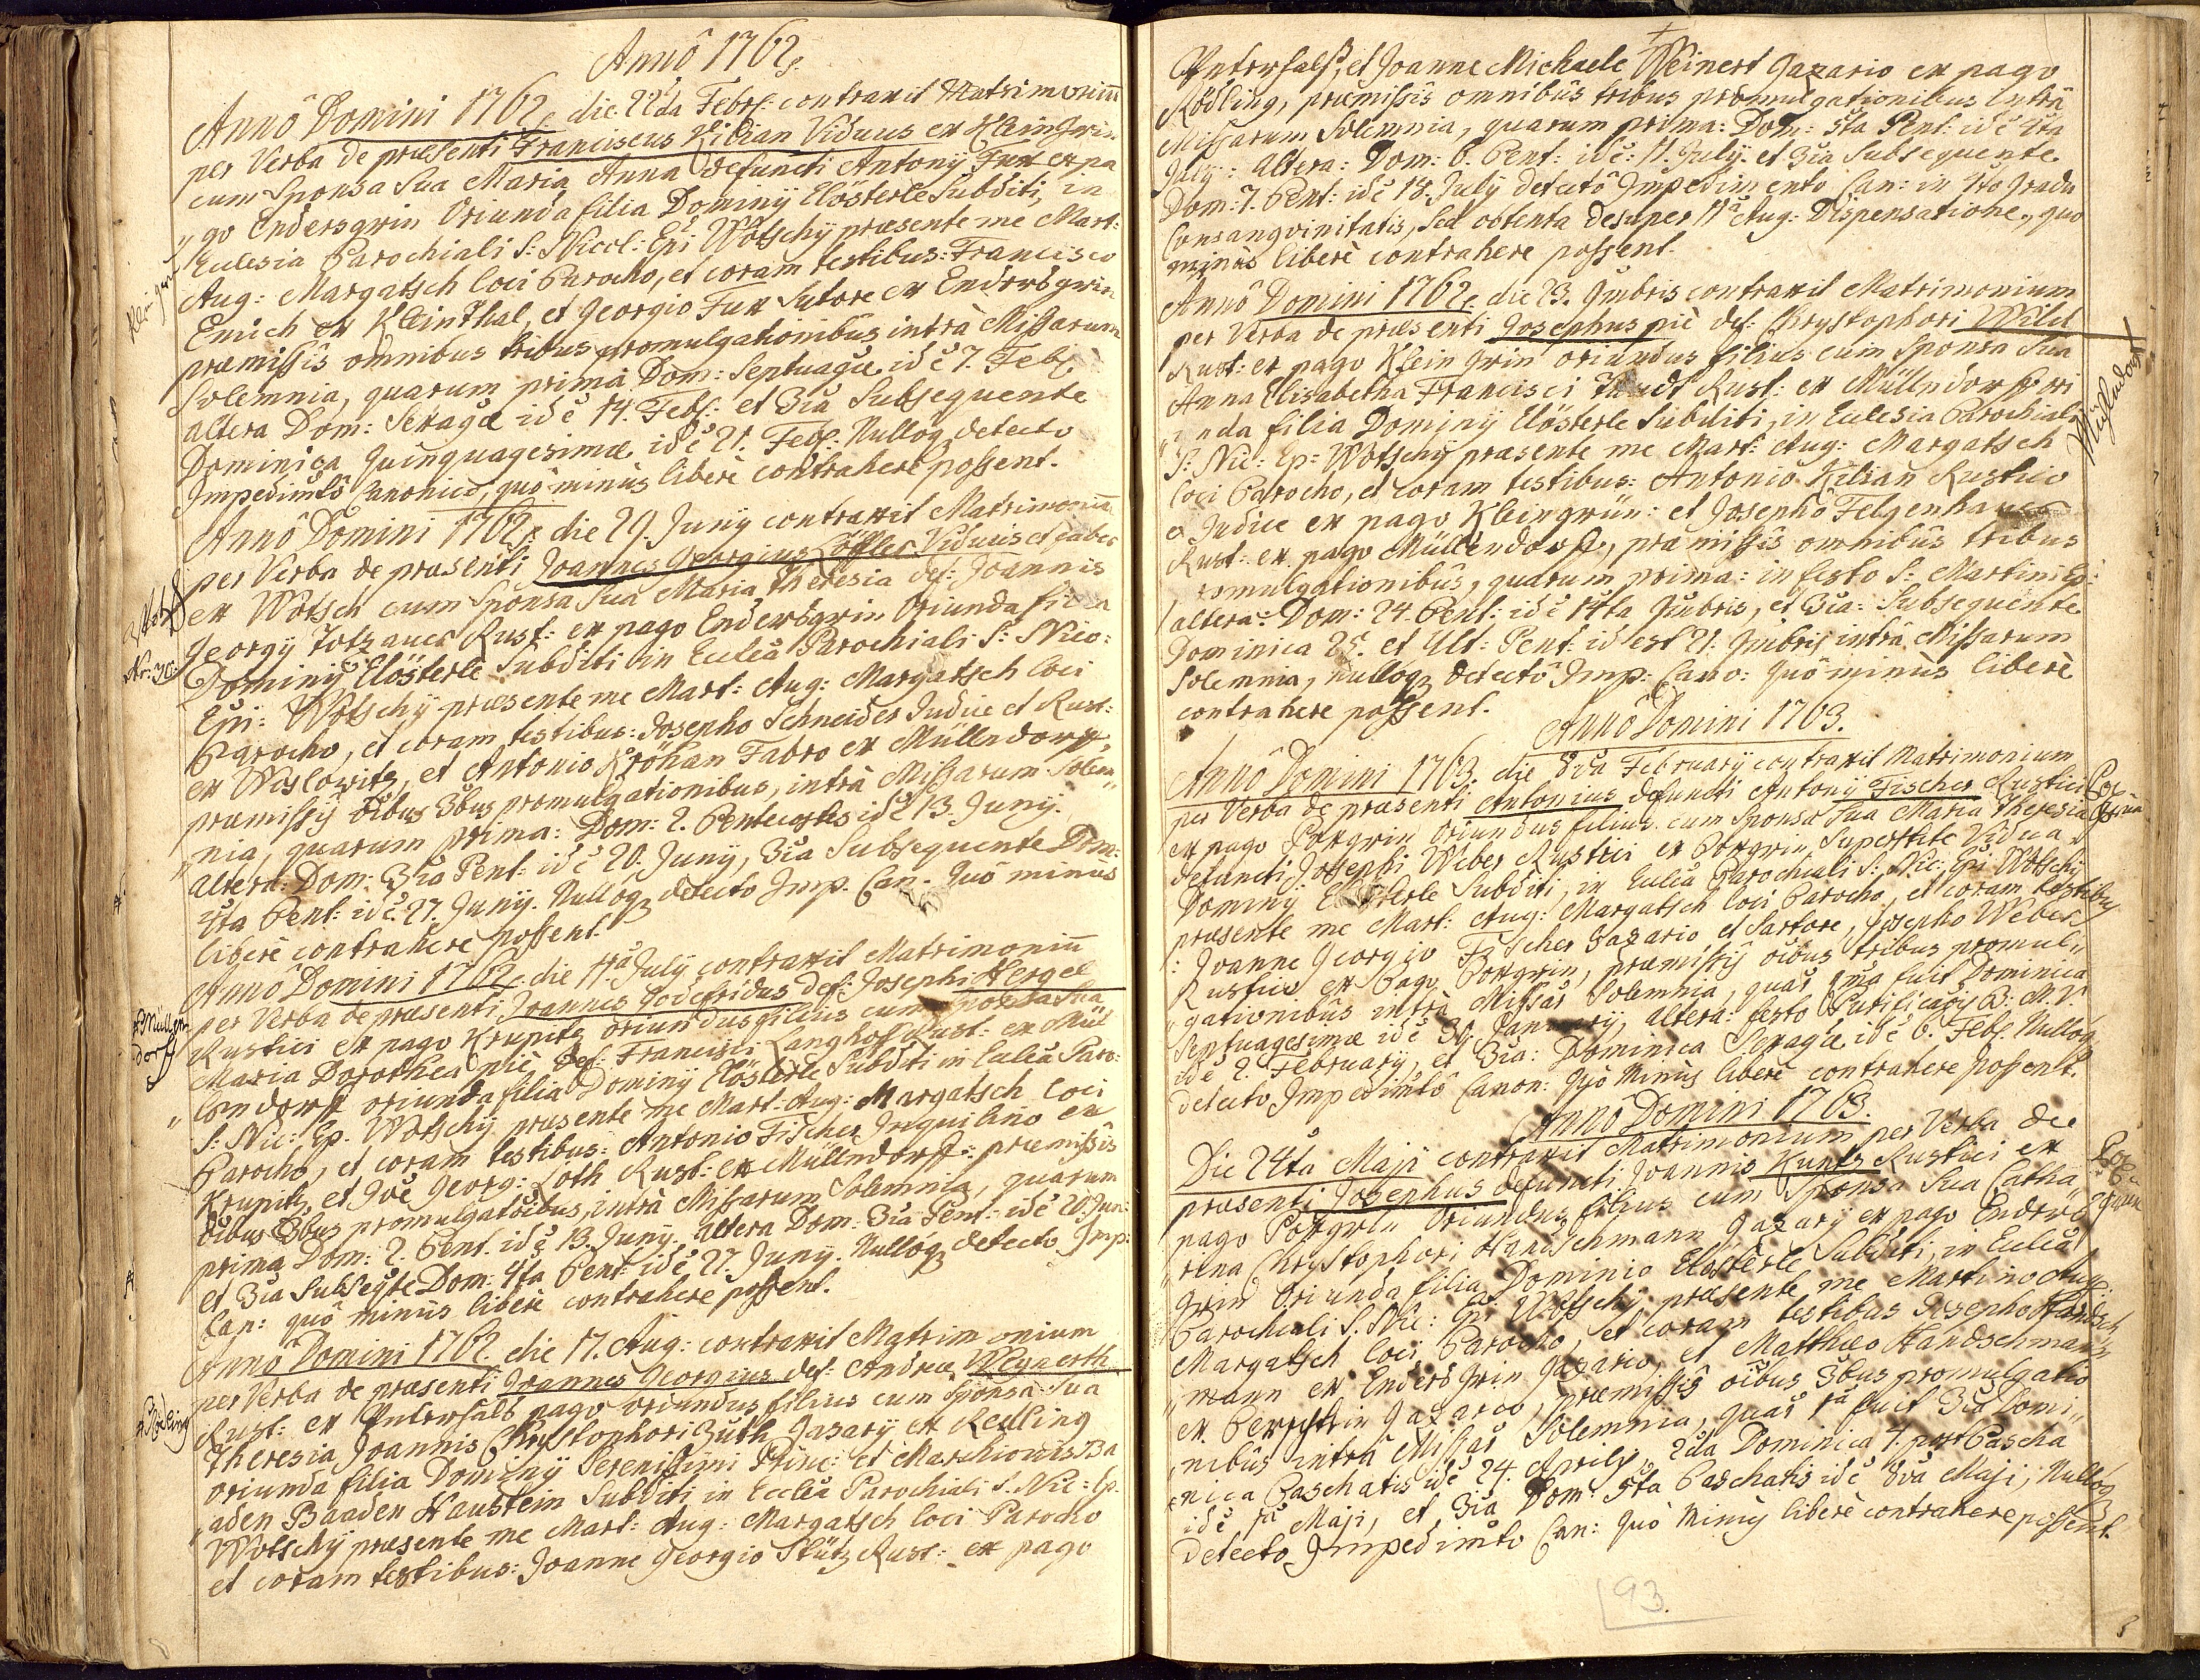 Annô 1762.
Annô Domini 1762. die 22da Febr: contraxit Matrimoniũ
per Verba de præsenti Franciscus Kilian Viduus ex Kleingrin
cum Sponsa Sua Maria Anna defuncti Antonÿ Fux ex pa
„go Endersgrin Oriunda filia Dominÿ Clösterle Subditi, in
Eclesia Parochiali S: Nicol: Epi Wotschÿ præsente me Mart:
Aug: Margatsch loci Parocho, et coram testibus: Francisco
Emich ex Kleinthal, et Georgio Fux Sutore ex Endersgrin
præmissîs omnibus tribus promulgationibus intrà Missarum
Solemnia, quarum prima Dom: Septuagæ id ẽ 7. Feb:
altera Dom: Sexagæ id ẽ 14. Feb: et 3ia Subsequente
Dominica Quinquagesimæ id ẽ 21. Feb: Nullôq detecto
Impedimtô Canonico, quò minùs liberè contrahere possent.
Annô Domini 1762. die 29. Junÿ contraxit Matrimoniũ
per Verba de præsenti Joannes Georgius Löffler Viduus et faber
ex Wotsch cum Sponsa Sua Maria Theresia def: Joannis
Wotsch
Nr: 30
Georgÿ Totzauer Rust: ex pago Endersgrin Oriunda filia
Dominÿ Clösterle Subditi in Eclea Parochiali S: Nico:
Epi: Wotschÿ præsente me Mart: Aug: Margatsch loci
Parocho, et coram testibus: Josepho Schneider Judice et Rust:
ex Wislowitz, et Antonio Kröhan Fabro ex Müllndorff,
præmissÿ oibus 3bus promulgationibus, intrà Missarum Solem„
„nia, quarum prima: Dom: 2. Pentecostes id ẽ 13. Junÿ.
altera: Dom: 3ia Pent: id ẽ 20. Junÿ, 3ia Subsequente Dom:
4ta Pent: id ẽ 27. Junÿ. Nulloq detecto Imp. Can. Quô minùs
liberè contrahere possent.
Annô Domini 1762. die 11a Julÿ contraxit Matrimoniũ
per Verba de præsenti Joannes Godefridus def: Josephi Hergel
Rustici ex pago Krupitz oriundus filius cum Sponsa Sua
x Müllen
dorff
Maria Dorothea piè def: Francisci Langhof Rust: ex Mül
„lendorff oriunda filia Dominÿ Clösterle Subditi in Eclea Paro:
S: Nic: Ep. Wotschÿ præsente me Mart: Aug: Margatsch loci
Parocho, et coram testibus: Antonio Fischer Inquilino ex
Krupitz, et Joe Georg: Loth Rust: ex Müllndorff: præmissîs
oibus 3bus promulgatiõibus intrà Missarum Solemnia, quarum
prima Dom: 2. Pent. id ẽ 13. Junÿ. altera Dom: 3ia Pent: id ẽ 20 Jun:
et 3ia Subseqte Dom: 4ta Pent: id ẽ 27. Junÿ. Nullôq detecto Imp:
Can: quô minùs liberè contrahere possent.
Annô Domini 1762 die 17. Aug: contraxit Matrimonium
per Verba de præsenti Joannes Georgius def: Andreæ Weynerth
Rust: ex Unterhals pago oriundus filius cum Sponsa Sua
x Rödling
Theresia Joannis Chrystophori Guth Gazarÿ ex Redling
oriunda filia Dominÿ Serenissimi Princ: et Marchionis Ba
„aden Baaden Haustein Subditi in Ecclea Parochiali S. Nic: Ep.
Wotschÿ præsente me Mart: Aug: Margatsch loci Parocho
et coram testibus: Joanne Georgio Stütz Rust: ex pago
Unterhals, et Joanne Michaele Weinert Gazario ex pago
Rödling, præmissîs omnibus tribus promulgationibus intrà
Missarum Solemnia, quarum prima: Dom: 5ta Pent: id ẽ 4ta
Julÿ: altera: Dom: 6. Pent: id ẽ: 11. Julÿ. et 3ia Subsequente
Dom: 7. Pent: id ẽ 18. Julÿ detectô Impedimento Can: in 4to Gradu
Consangvinitatis, Sed obtenta desuper 11a Aug: Dispensatione, quo
minùs liberè contrahere possent.
Annô Domini 1762. die 23. 9mbris contraxit Matrimonium
per Verba de præsenti Josephus piè def: Chrystophori Wild
Rust: ex pago Klein Grin oriundus filius cum Sponsa Sua
Anna Elisabetha Francisci Rust: ex Müllndorff ori
„unda filia Dominÿ Clösterle Subditi, in Eclesia Parochiali
Müllndorff
S: Nic: Ep: Wotschÿ præsente me Mart: Aug: Margatsch
loci Parocho, et coram testibus: Antonio Kilian Rustico
et Judice ex pago Kleingrün: et Josephô Felgenhauer
Rust: ex pago Müllendorff, præmissîs omnibus tribus
promulgationibus, quarum prima: in festo S: Martini Ep:
altera: Dom: 24. Pent: id ẽ 14ta 9mbris, et 3ia: Subsequente
Dominica 25. et Ult: Pent: id est 21. 9mbris intrà Missarum
Solemnia, nullôq detectô Imp: Cano: quô minùs liberè
contrahere possent.
Annô Domini 1763.
Annô Domini 1763. die 8va Februarÿ contraxit Matrimonium
per Verba de præsenti Antonius defuncti Antonÿ Fischer Rustici
ex pago Poxgrin Oriundus filius cum Sponsa Sua Maria Theresia
defuncti Josephi Weber Rustici ex Poxgrin Superstite Vidua
Dominÿ Clösterle Subditi, in Eclea Parochiali S: Nic: Epi Wotschÿ
præsente me Mart: Aug: Margatsch loci Parocho, et coram testibus
: Joanne Georgio Fischer Gazario et Sartore, Josepho Weber
Rustico ex Pago Poxgrin, præmissîs oibus tribus promul„
„gationibus intrà Missar̃ Solemnia, quar̃ 1ma fuit Dominica
Septuagesimæ id ẽ 30 Januarÿ, altera: festo Purificaõis B: M. V.
id ẽ 2. Februarÿ, et 3ia: Dominica Sexagæ id ẽ 6. Feb: Nullôq
detecto Impedimtô Canon: Quò Minùs liberè contrahere possent.
Annô Domini 1763.
Die 24ta Maji contraxit Matrimonium per Verba de
præsenti Josephus defuncti Joannis Kunts Rustici ex
pago Poxgrin Oriundus filius cum Sponsa Sua Catha
„rina Chrystophori Handschmann Gazarÿ ex pago Enders
Grin Oriunda filia Dominio Clösterle Subditi, in Eclea
Parochiali S. Nic: Epi Wotschÿ præsente me Martino Aug:
Margatsch loci Parocho, et coram testibus Josepho Handsch„
„mann ex Enders Grin Gazario, et Matthæo Handschmann
ex Gazario, præmissîs oibus 3bus promulgatio
„nibus intrà Missar̃ Solemnia, quar̃ 1a fuit 3ia Domi„
„nica Paschatis id ẽ 24. Aprilis, 2da Dominica 4. post Pascha
id ẽ 1a Maji, et 3ia Dom: 5ta Paschatis id ẽ 8va Maji, Nullôq
detecto Impedimto Can: Quò Minùs liberè contrahere possent.
93.